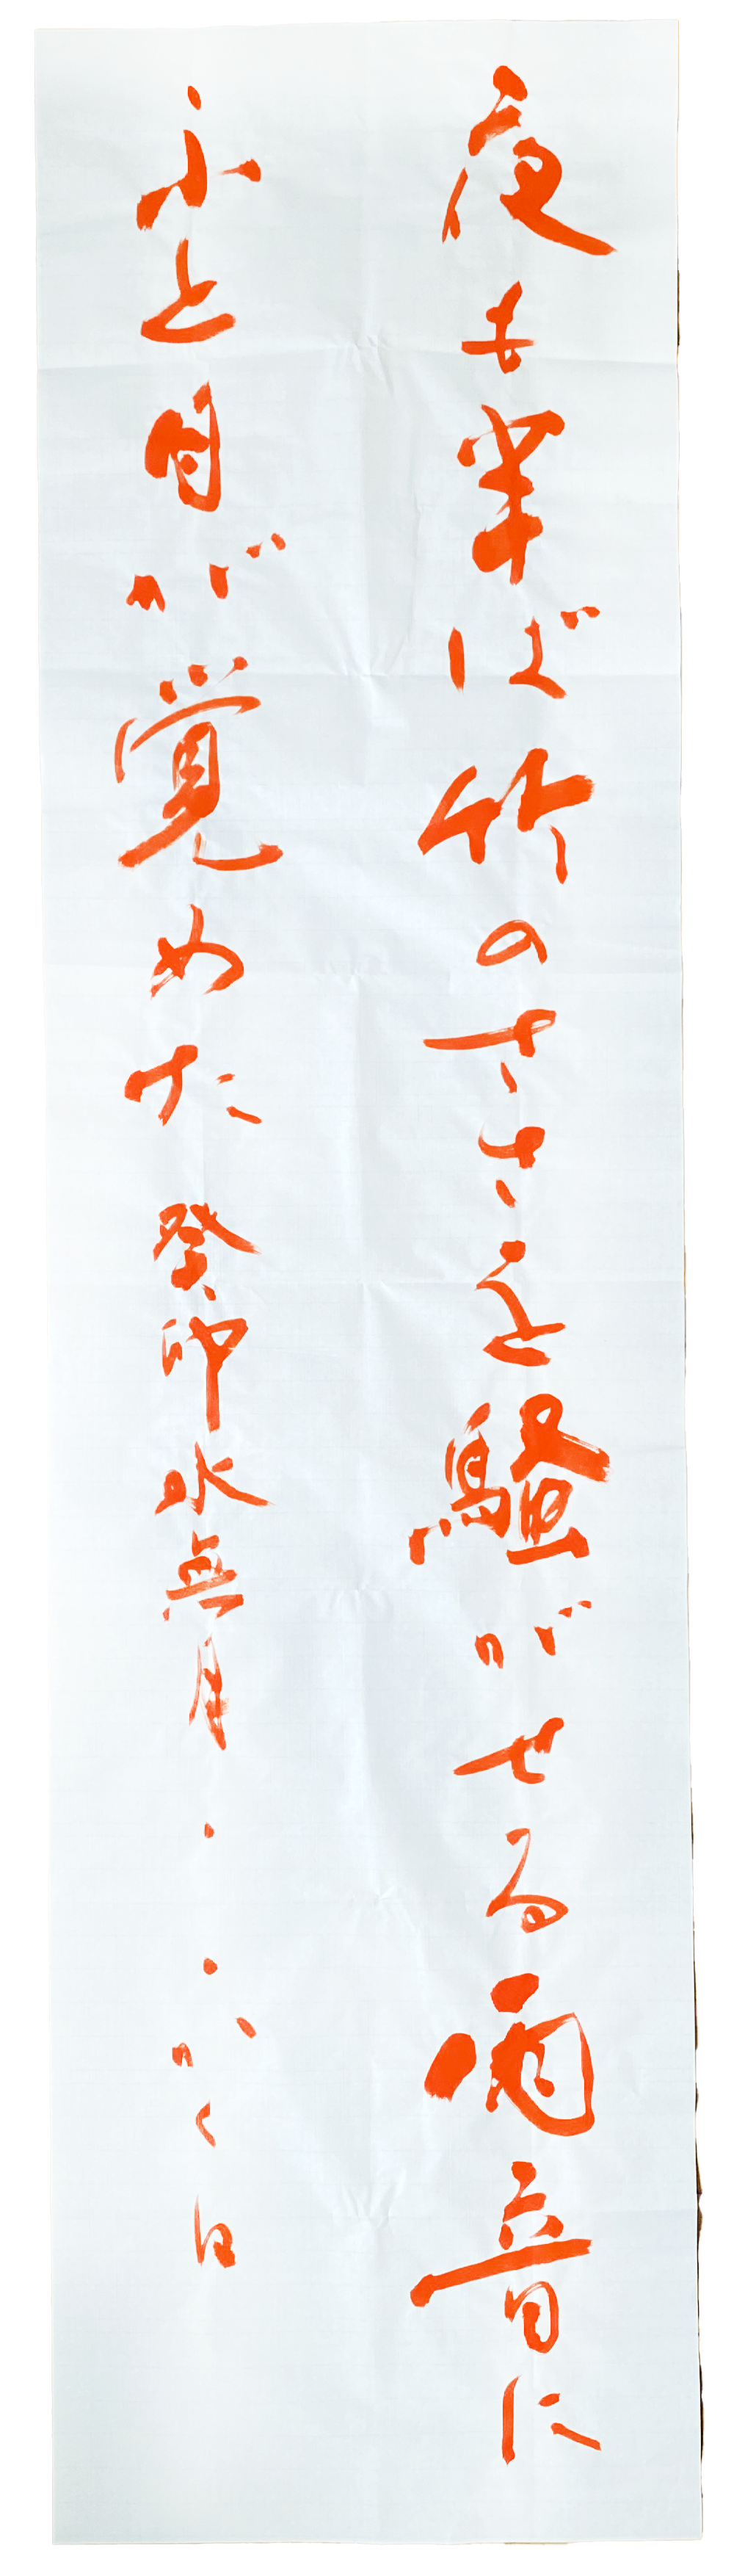 夜も半ば竹のささを騒がせる雨音に
ふと目が覚めた 癸卯水無月・・かく日